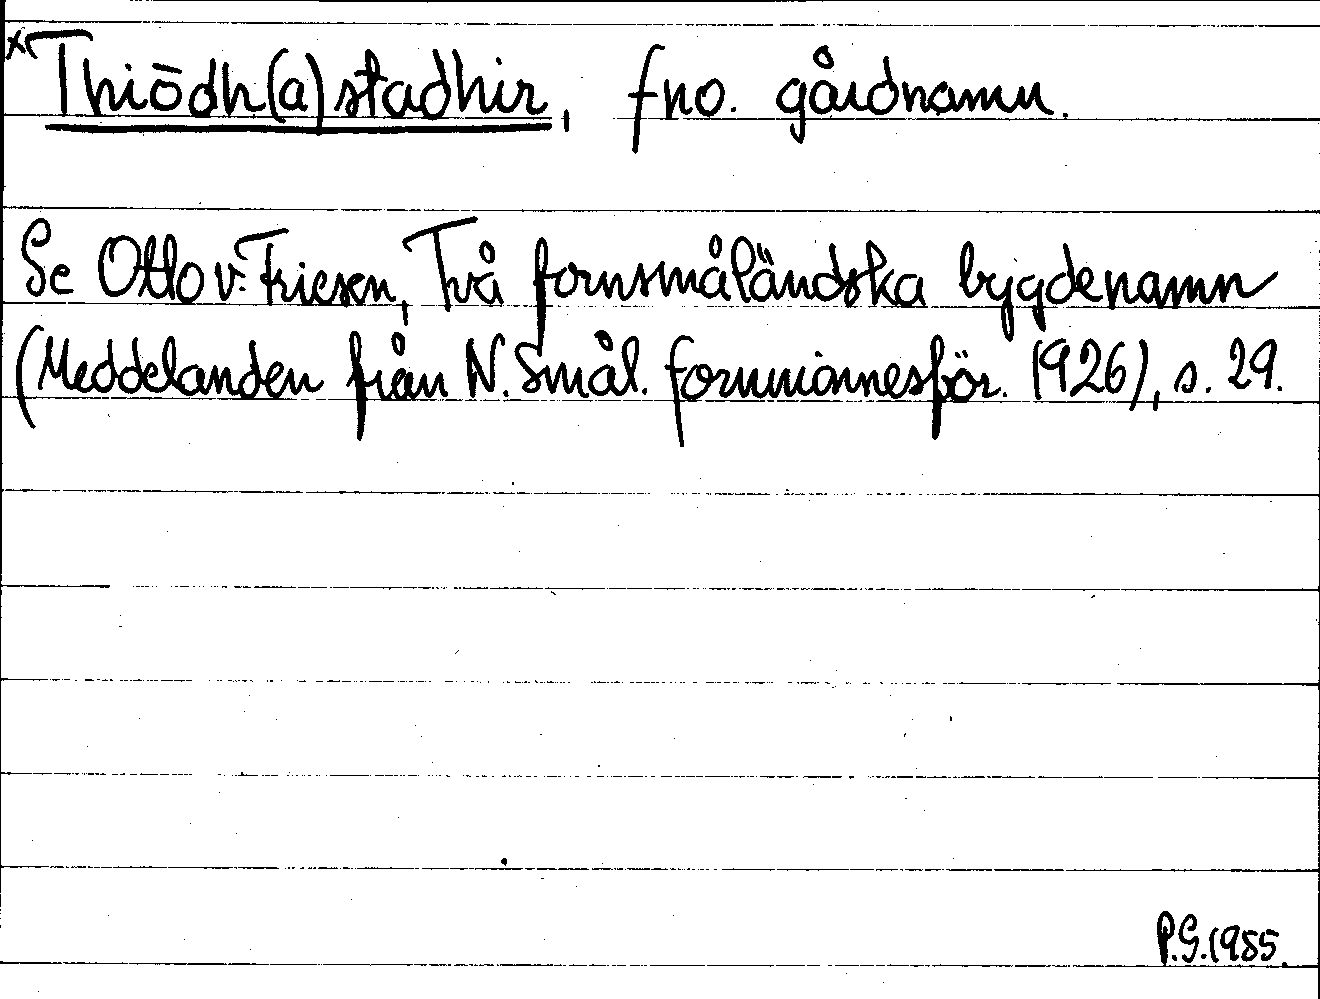 ×Thiōdh(a)stadhir, fno. gårdnamn.
Se Otto v. Friesen, Två fornsmåländska bygdenamn
(Meddelanden från N. Smål. fornminnesför. 1926), s. 29.
P.G. 1955.